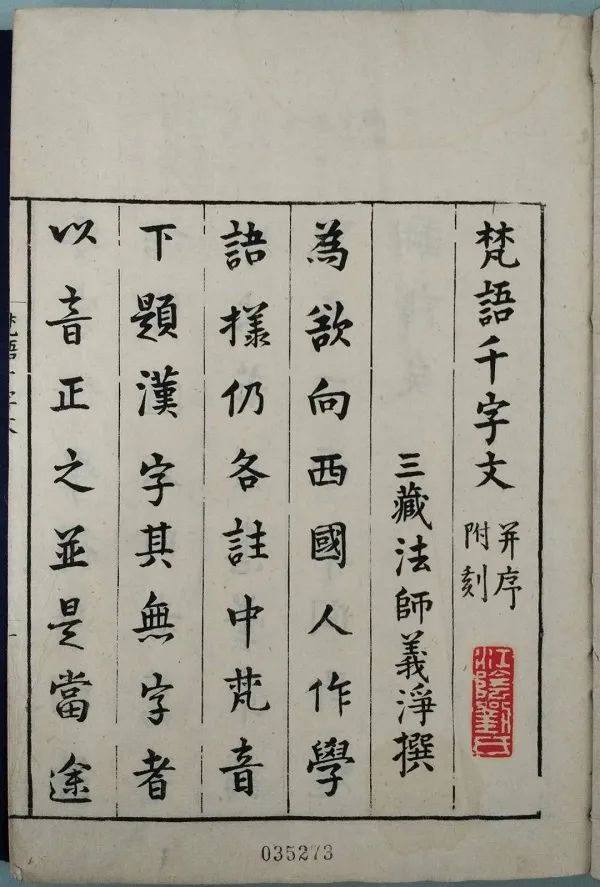 梵語千字文 并序附刻
三藏法師義淨撰
為欲向西國人作學
語樣仍各註中梵音
下題漢字其無字者
以音正之並是當途
江陰劉氏
035273